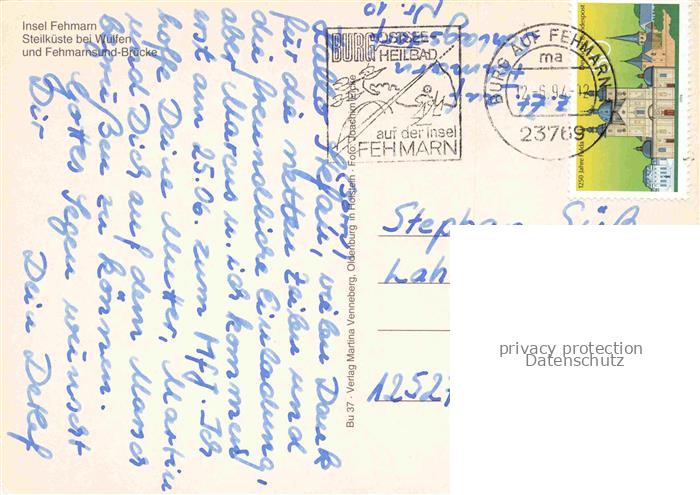 Insel Fehmarn
Steilküste bei Wulfen
und Fehmarnsund-Brücke
BURG
OSTSEE-
HEILBAD
auf der Insel
FEHMARN
BURG AUF FEHMARN
ma
12.-6.94-12
23769
1250 Jahre Fulda
Bundespost
Nr. 10
Stefan, vielen Dank
für die netten Zeilen und
die freundliche Einladung,
aber Marcus u. ich kommen
erst am 25.06. zum Mfj. Ich
hoffe Deine Mutter, Martin
und Dich auf dem Marsch
begrüßen zu können.
Gottes Segen wünscht
Dir Dein Detlef
Bu 37 · Verlag Martina Venneberg, Oldenburg in Holstein · Foto: Joachim
Stephan Süß
Lah
1252
privacy protection
Datenschutz